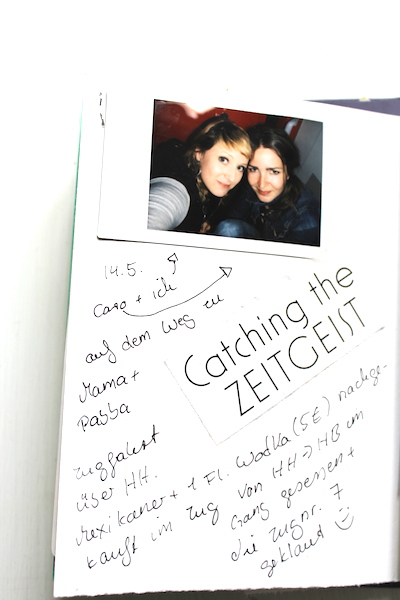 14.5.
Caro + ich
auf dem Weg zu
Mama +
Pabba
Catching the
ZEITGEIST
Zugfahrt
über HH.
Mexikaner + 1 Fl. Wodka (5€) nachge-
kauft im Zug von HH → HB im
Gang gesessen +
die Zugnr. 7
geklaut